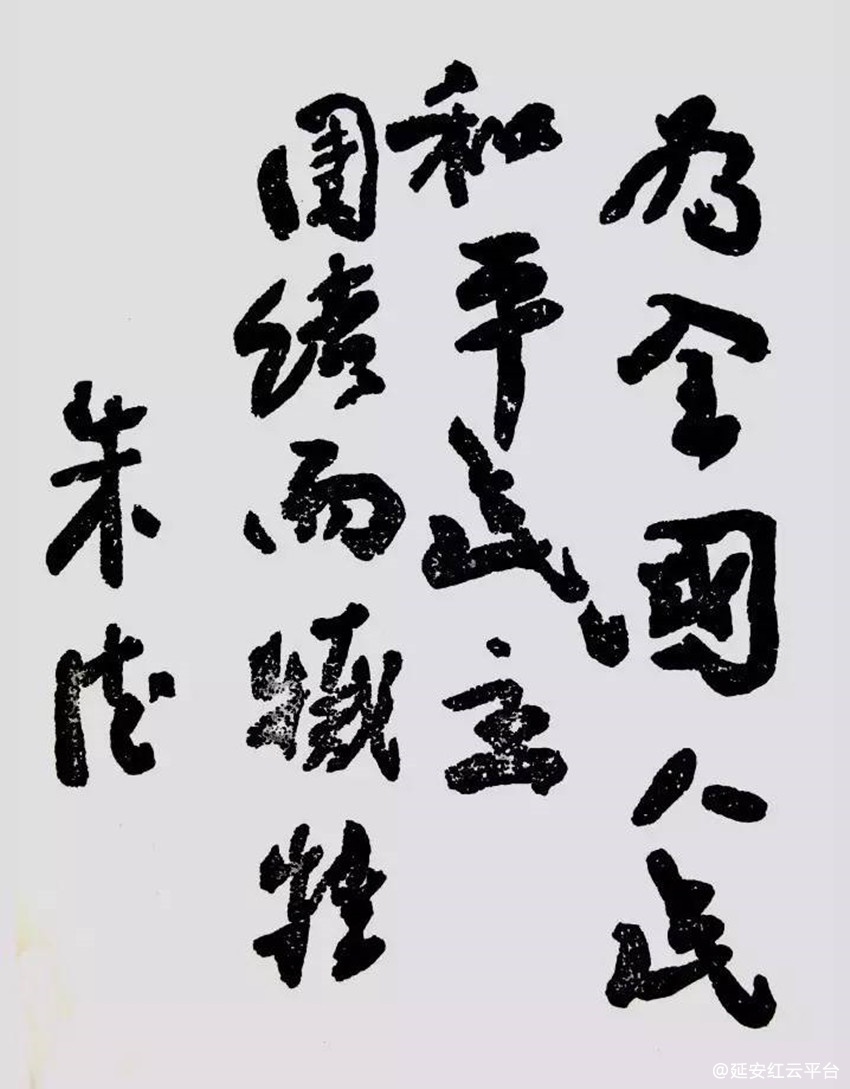 为全國人民
和平民主
團結而犧牲
朱德
@延安红云平台